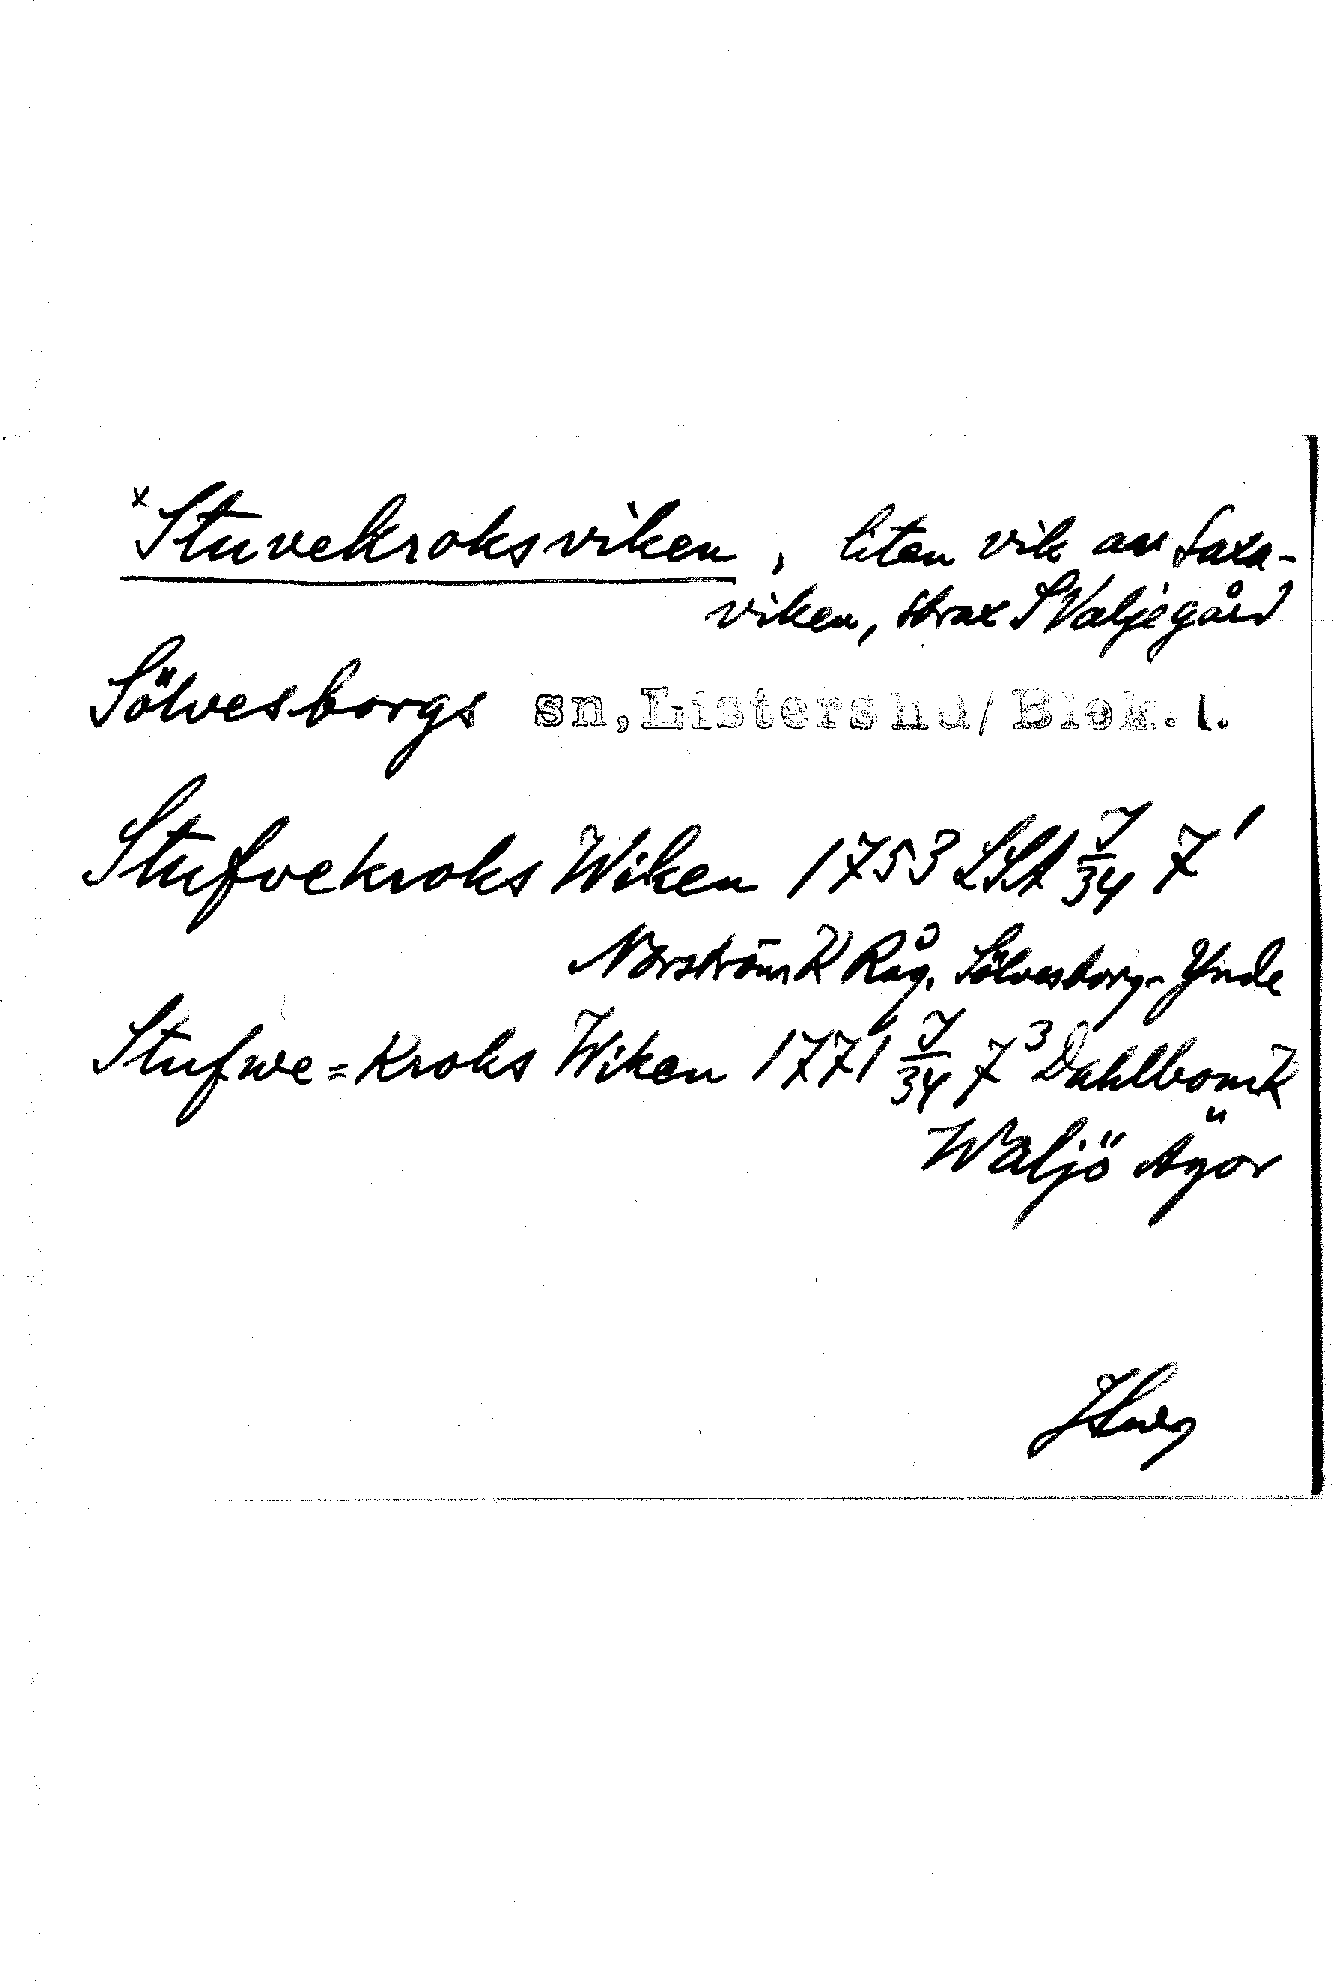 x Stuvekroksviken, liten vik av Saxa-
viken, strax S Valjegård
Sölvesborgs sn, Listers hd/ Blek. l.
Stufvekroks Wiken 1753 LSA J/34 7¹
Norström K Råg. Sölvesborg - Ynde
Stufwe=Kroks Wiken 1771 J/34 7³ Dahlbom K
Waljö Ägor